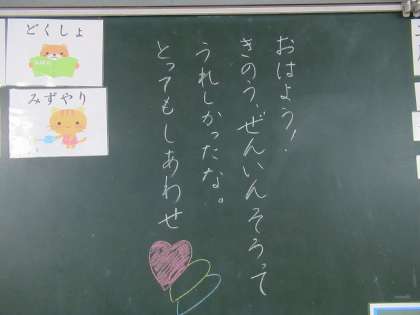 おはよう！
きのう、ぜんいんそろって
うれしかったな。
とってもしあわせ
どくしょ
みずやり